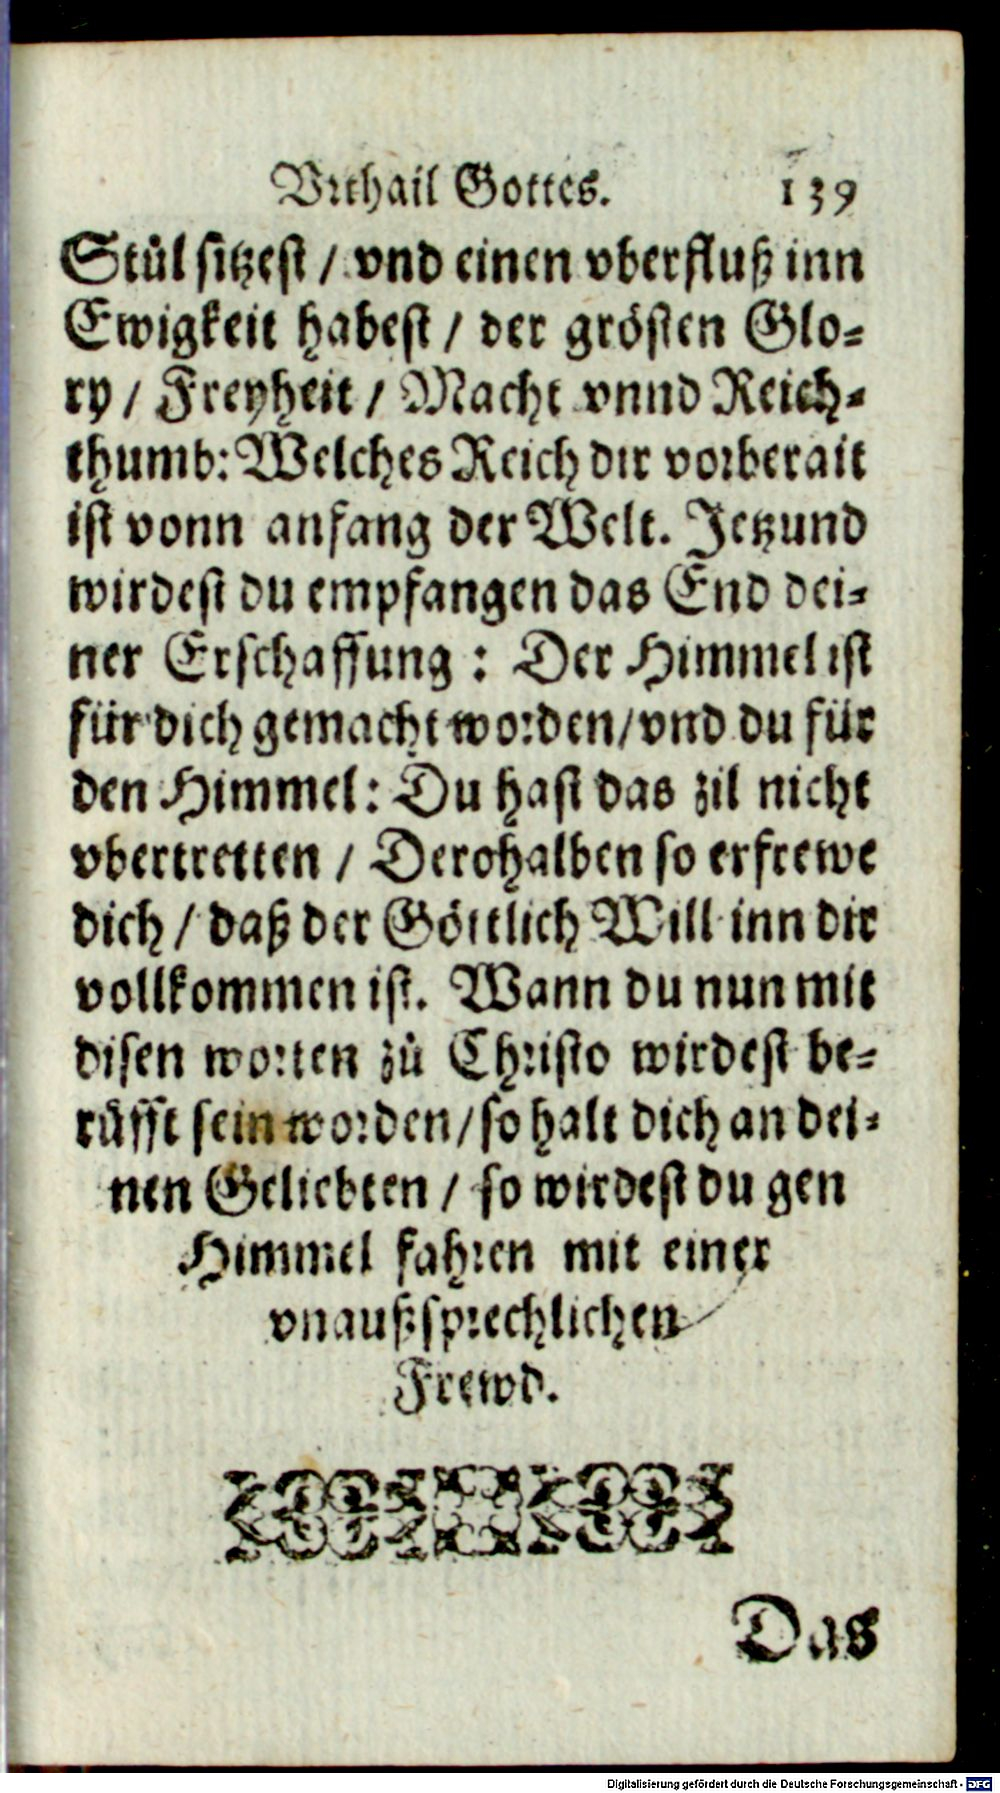 Vrthail Gottes. 139
Stůl sitzest / vnd einen vberfluß inn
Ewigkeit habest / der grösten Glo-
ry / Freyheit / Macht vnnd Reich-
thumb: Welches Reich dir vorberait
ist vonn anfang der Welt. Jetzund
wirdest du empfangen das End dei-
ner Erschaffung : Der Himmel ist
für dich gemacht worden/vnd du für
den Himmel: Du hast das zil nicht
vbertretten / Derohalben so erfrewe
dich / daß der Göttlich Will inn dir
vollkommen ist. Wann du nun mit
disen worten zů Christo wirdest be-
růfft sein worden/so halt dich an dei-
nen Geliebten / so wirdest du gen
Himmel fahren mit einer
vnaußsprechlichen
Frewd.
Das
Digitalisierung gefördert durch die Deutsche Forschungsgemeinschaft - DFG